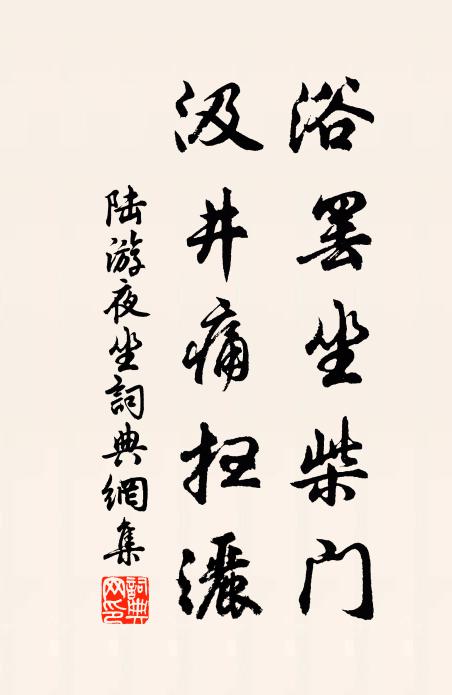 浴罷坐柴門
汲井痛扫灑
陆游夜坐詞典網集
詞典網印